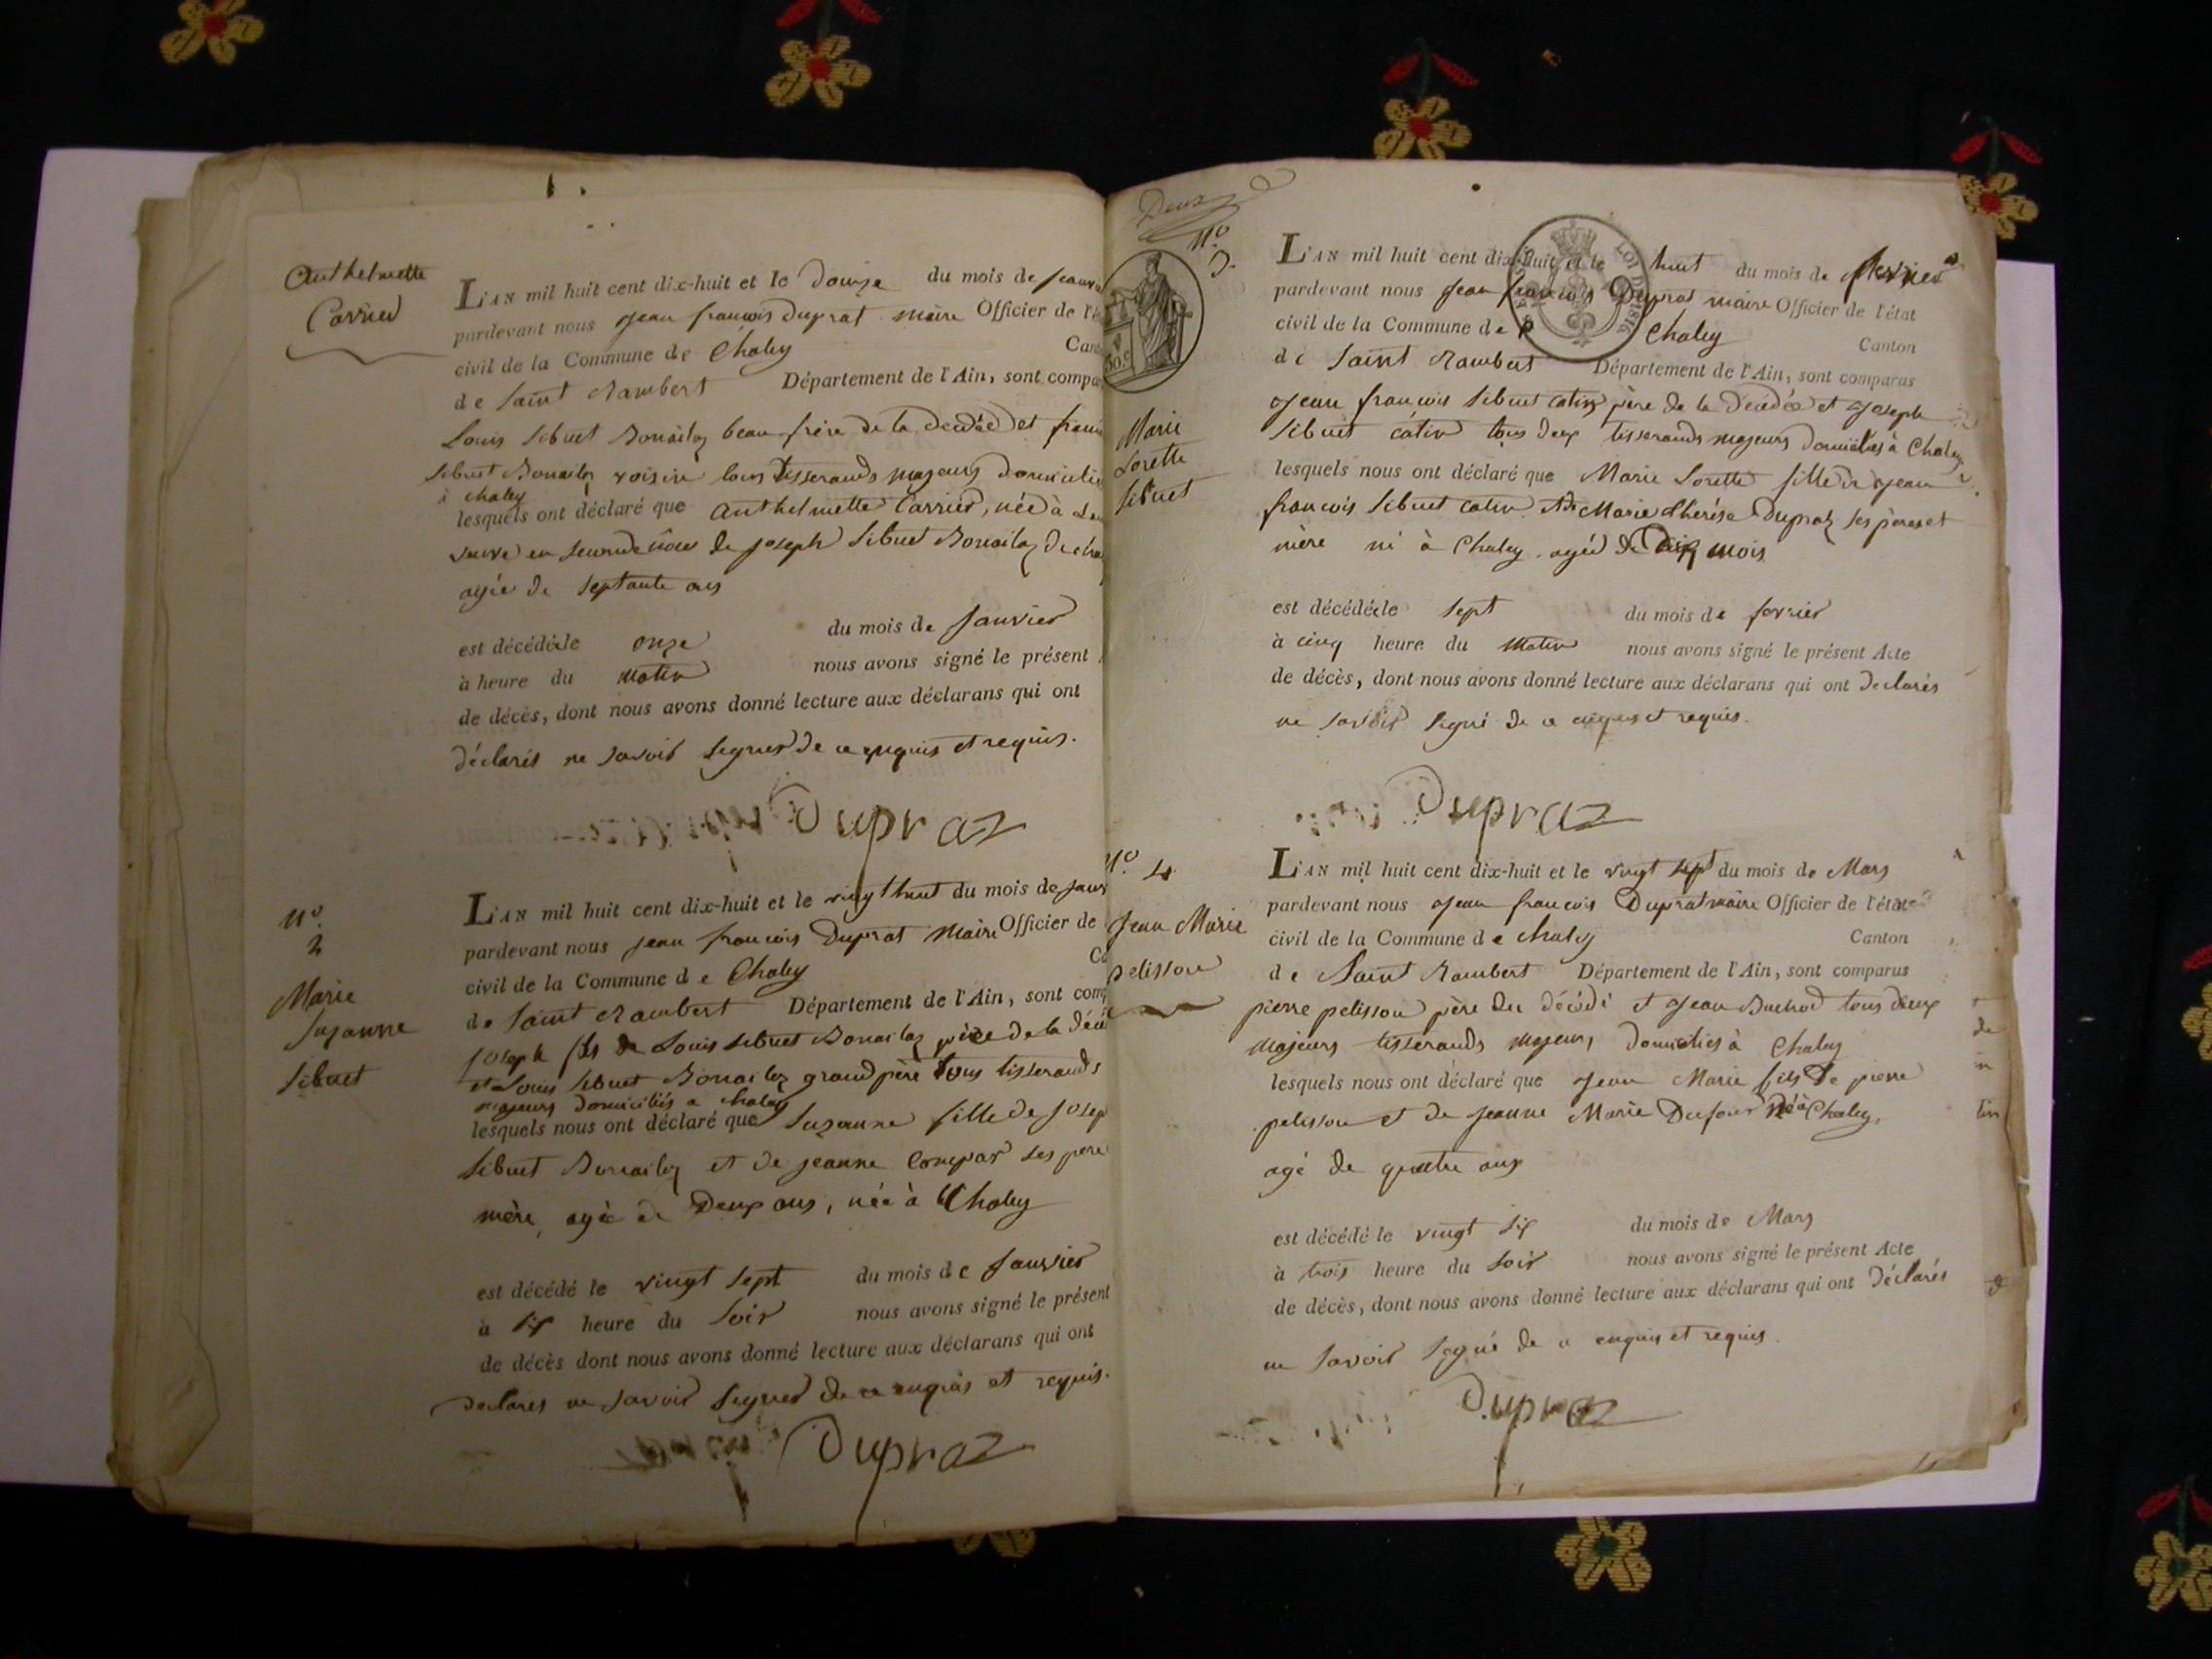 Anthelmette
Carrier
L'AN mil huit cent dix-huit et le Douze du mois de Janvi
pardevant nous Jean francois Duprat maire Officier de l'é
civil de la Commune de Chaley Cant
de Saint Rambert Département de l'Ain, sont compa
Louis Sibuet Bonailaz beau frère de la decédée et franc
Sibuet Bonailaz voisin tous tisserands majeurs domicilié
à chaley
lesquels ont déclaré que Anthelmette Carrier, née à
veuve en seconde nôce de Joseph Sibuet Bonailaz de cha
agée de septante ans
est décédée le onze du mois de Janvier
à heure du matin nous avons signé le présent
de décès, dont nous avons donné lecture aux déclarans qui ont
déclarés ne savoir signer de ce enquis et requis.
Dupraz
N.o
2
Marie
Suzanne
Sibuet
L'AN mil huit cent dix-huit et le vingt huit du mois de Janv
pardevant nous Jean francois Duprat Maire Officier de
civil de la Commune de Chaley Ca
de Saint Rambert Département de l'Ain, sont comp
Joseph fils de Louis Sibuet Bonailaz père de la décé
et Louis Sibuet Bonailaz grand père tous tisserands
majeurs domiciliés a chaley
lesquels nous ont déclaré que Suzanne fille de Josep
Sibuet Bonailaz et de jeanne Compar ses pere
mère, agée de Deux ans, née à Chaley
est décédé le vingt sept du mois de Janvier
à six heure du soir nous avons signé le présent
de décès dont nous avons donné lecture aux déclarans qui ont
declares ne savoir signer de ce enquis et requis.
Dupraz
Deux
N.o
3.
50 c
LOI DE 1816
Marie
Lorette
Sibuet
L'AN mil huit cent dix-huit et le huit du mois de fevrier
pardevant nous Jean francois Duprat maire Officier de l'état
civil de la Commune de Chaley Canton
de Saint Rambert Département de l'Ain, sont comparus
Jean francois Sibuet catin père de la decedée et Joseph
Sibuet catin tous deux tisserands majeurs domiciliés à Chaley
lesquels nous ont déclaré que Marie Lorette fille de Jean
francois Sibuet catin et de Marie thérése Dupraz ses pere et
mère né à Chaley agée de dix mois
est décédée le sept du mois de fevrier
à cinq heure du matin nous avons signé le présent Acte
de décès, dont nous avons donné lecture aux déclarans qui ont déclarés
ne savoir signé de ce enquis et requis.
Dupraz
N.o 4
Jean Marie
pelisson
L'AN mil huit cent dix-huit et le vingt sept du mois de Mars
pardevant nous Jean francois Duprat maire Officier de l'état
civil de la Commune de chaley Canton
de Saint Rambert Département de l'Ain, sont comparus
pierre pelisson père du décédé et Jean Buchod tous deux
majeurs tisserands majeurs domicilies à Chaley
lesquels nous ont déclaré que Jean Marie fils de pierre
pelisson et de jeanne Marie Dufour né à Chaley,
agé de quatre ans
est décédé le vingt six du mois de Mars
à trois heure du soir nous avons signé le présent Acte
de décès, dont nous avons donné lecture aux déclarans qui ont déclarés
ne savoir signé de ce enquis et requis.
Dupraz